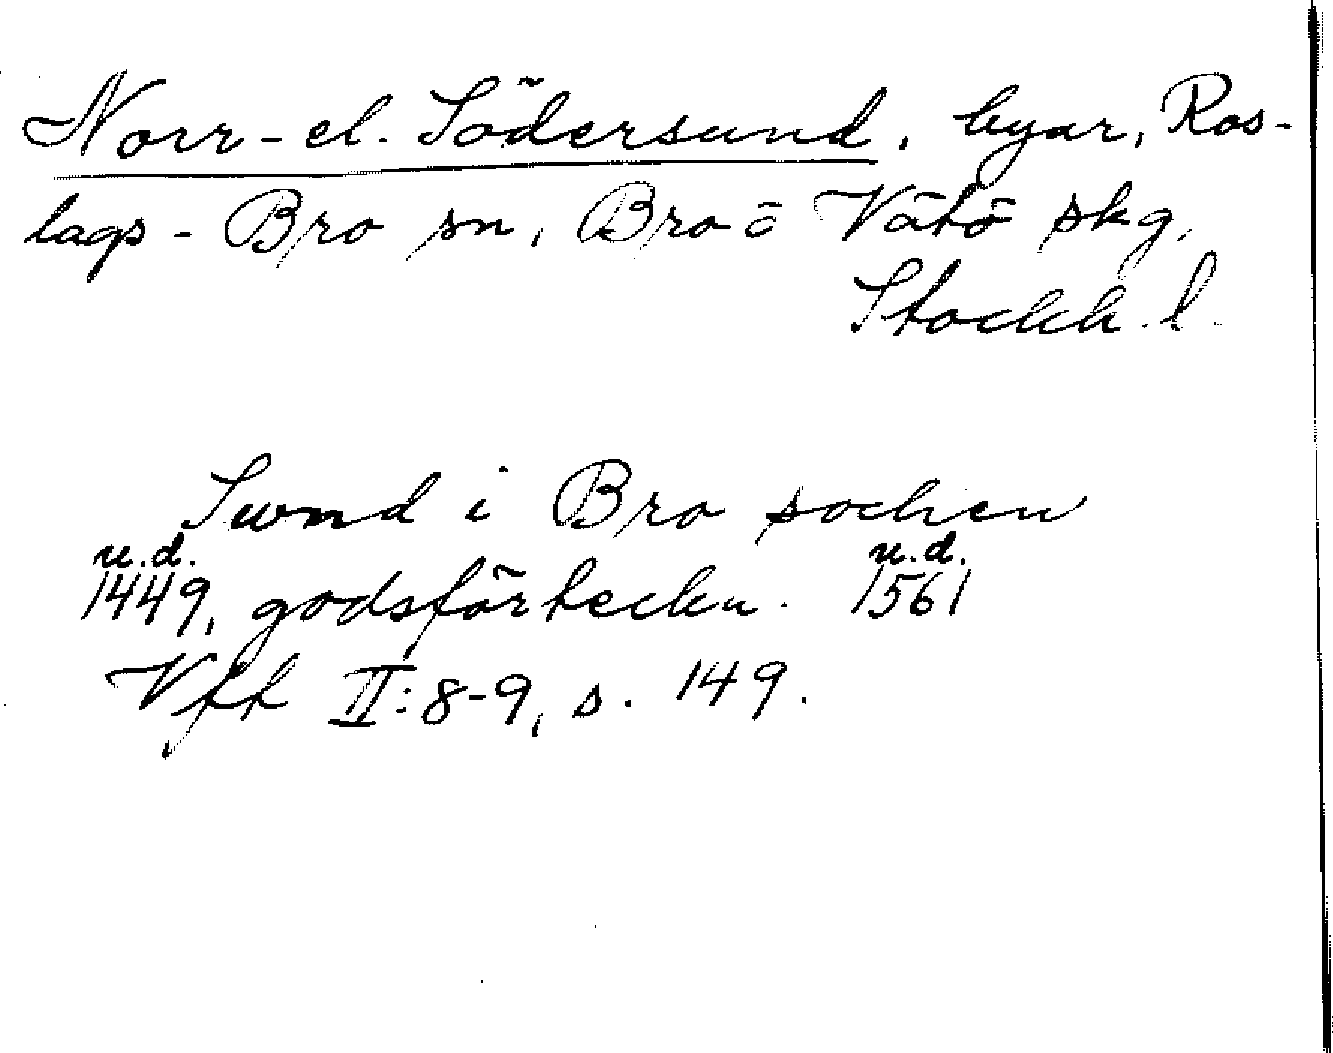 Norr- el. Södersund, byar, Ros-
lags-Bro sn, Bro ö Vätö skg,
Stockh. l.
Swnd i Bro sochen
u.d. u.d.
1449, godsförteckn. 1561
Vff II:8-9, s. 149.